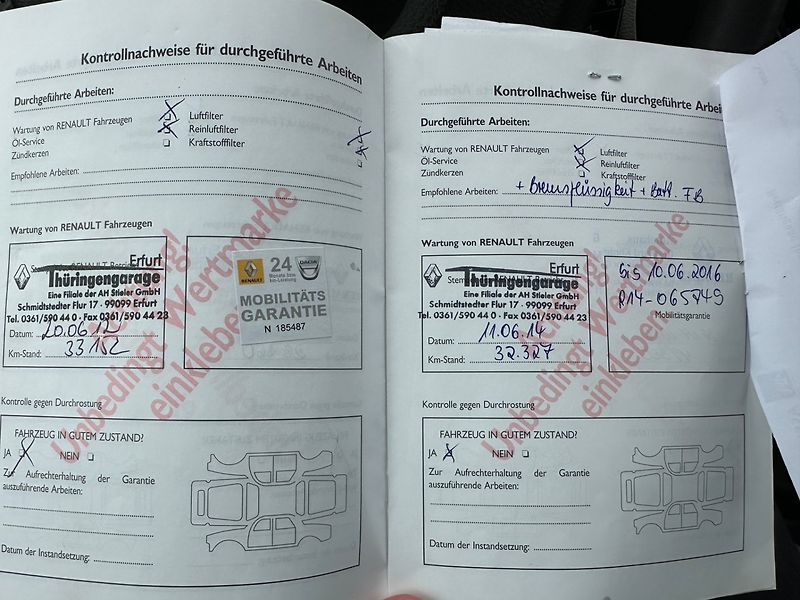 Kontrollnachweise für durchgeführte Arbeiten
Durchgeführte Arbeiten:
Wartung von RENAULT Fahrzeugen
Luftfilter
Öl-Service
Reinluftfilter
Zündkerzen
Kraftstofffilter
Empfohlene Arbeiten:
Wartung von RENAULT Fahrzeugen
Erfurt
Thüringengarage
Eine Filiale der AH Stieler GmbH
Schmidtstedter Flur 17 · 99099 Erfurt
Tel. 0361/590 44 0 · Fax 0361/590 44 23
Datum: 20.06.12
Km-Stand: 33152
RENAULT
24
Monate
DACIA
MOBILITÄTS
GARANTIE
N 185487
Unbedingt Wertmarke
einkleben!
Kontrolle gegen Durchrostung
FAHRZEUG IN GUTEM ZUSTAND?
JA NEIN
Zur Aufrechterhaltung der Garantie
auszuführende Arbeiten:
Datum der Instandsetzung:
Kontrollnachweise für durchgeführte Arbei
Durchgeführte Arbeiten:
Wartung von RENAULT Fahrzeugen
Luftfilter
Öl-Service
Reinluftfilter
Zündkerzen
Kraftstofffilter
Empfohlene Arbeiten: + Bremsflüssigkeit + Batt. FB
Wartung von RENAULT Fahrzeugen
Erfurt
Thüringengarage
Eine Filiale der AH Stieler GmbH
Schmidtstedter Flur 17 · 99099 Erfurt
Tel. 0361/590 44 0 · Fax 0361/590 44 23
Datum: 11.06.14
Km-Stand: 32.327
bis 10.06.2016
R14-065749
Mobilitätsgarantie
Unbedingt Wertmarke
einkleben
Kontrolle gegen Durchrostung
FAHRZEUG IN GUTEM ZUSTAND?
JA NEIN
Zur Aufrechterhaltung der Garantie
auszuführende Arbeiten:
Datum der Instandsetzung: